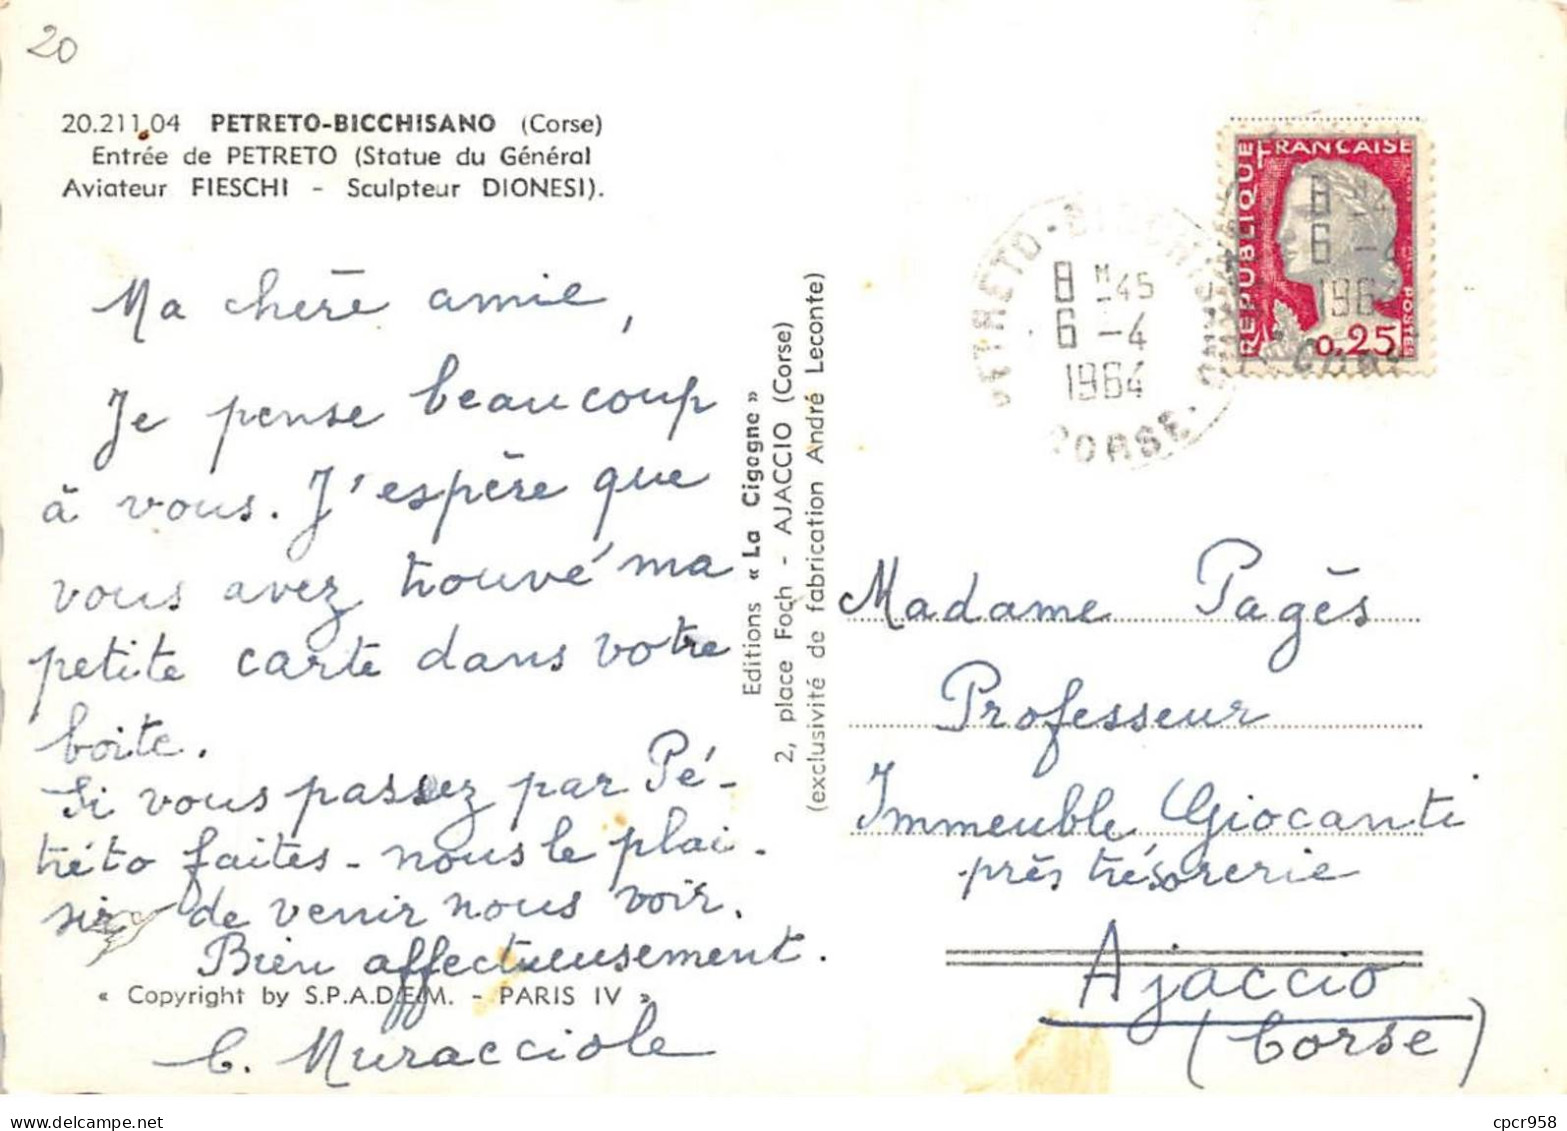 20
20.211.04 PETRETO-BICCHISANO (Corse)
Entrée de PETRETO (Statue du Général
Aviateur FIESCHI - Sculpteur DIONESI).
Ma chère amie,
Je pense beaucoup
à vous. J'espère que
vous avez trouvé ma
petite carte dans votre
boite.
Si vous passez par Pé-
tréto faites-nous le plai-
sir de venir nous voir.
Bien affectueusement.
« Copyright by S.P.A.D.E.M. - PARIS IV »
C. Muracciole
Editions « La Cigogne »
2, place Foch - AJACCIO (Corse)
(exclusivité de fabrication André Leconte)
PETRETO-BICCHISANO
8 H 45
6 -4
1964
CORSE
REPUBLIQUE FRANCAISE
POSTES
0,25
8 H 4
6 -4
1964
CORSE
Madame Pagès
Professeur
Immeuble Giocanti
près trésorerie
Ajaccio
(Corse)
cpcr958